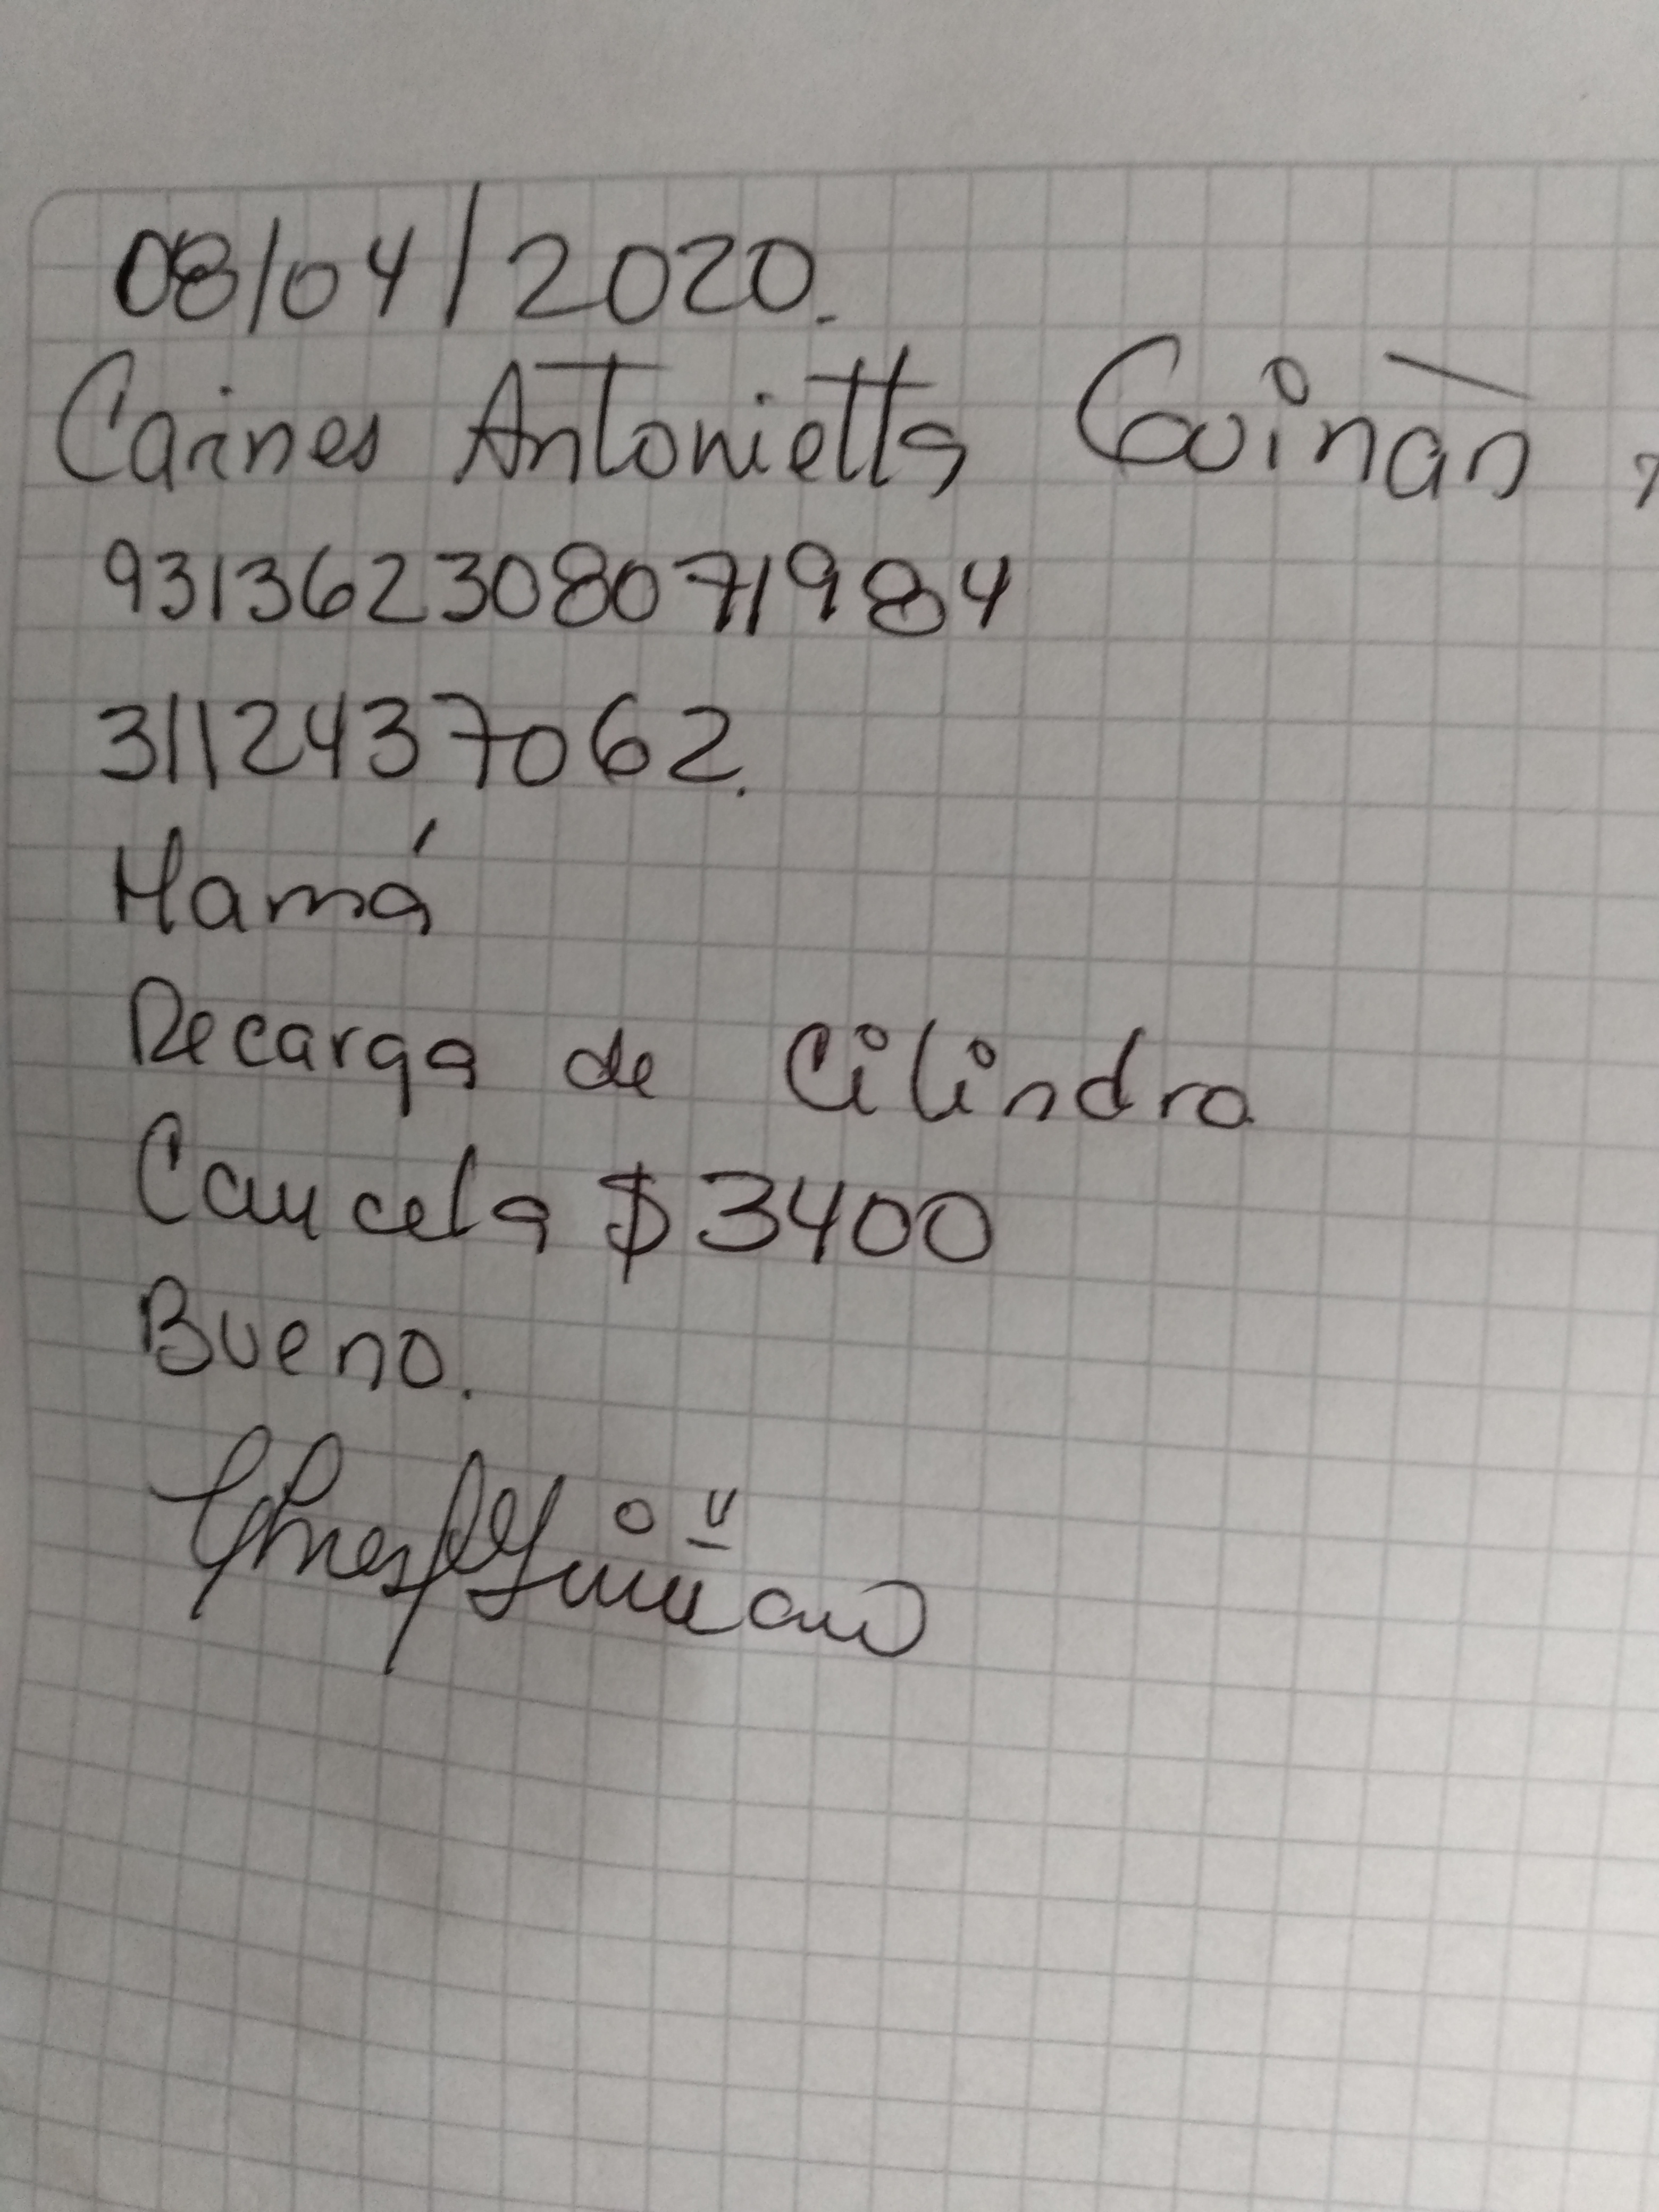 08/04/2020.
Carines Antonietta Guiñan
931362308071984
3112437062.
Mamá
Recarga de Cilindro
Cancela $3400
Bueno.